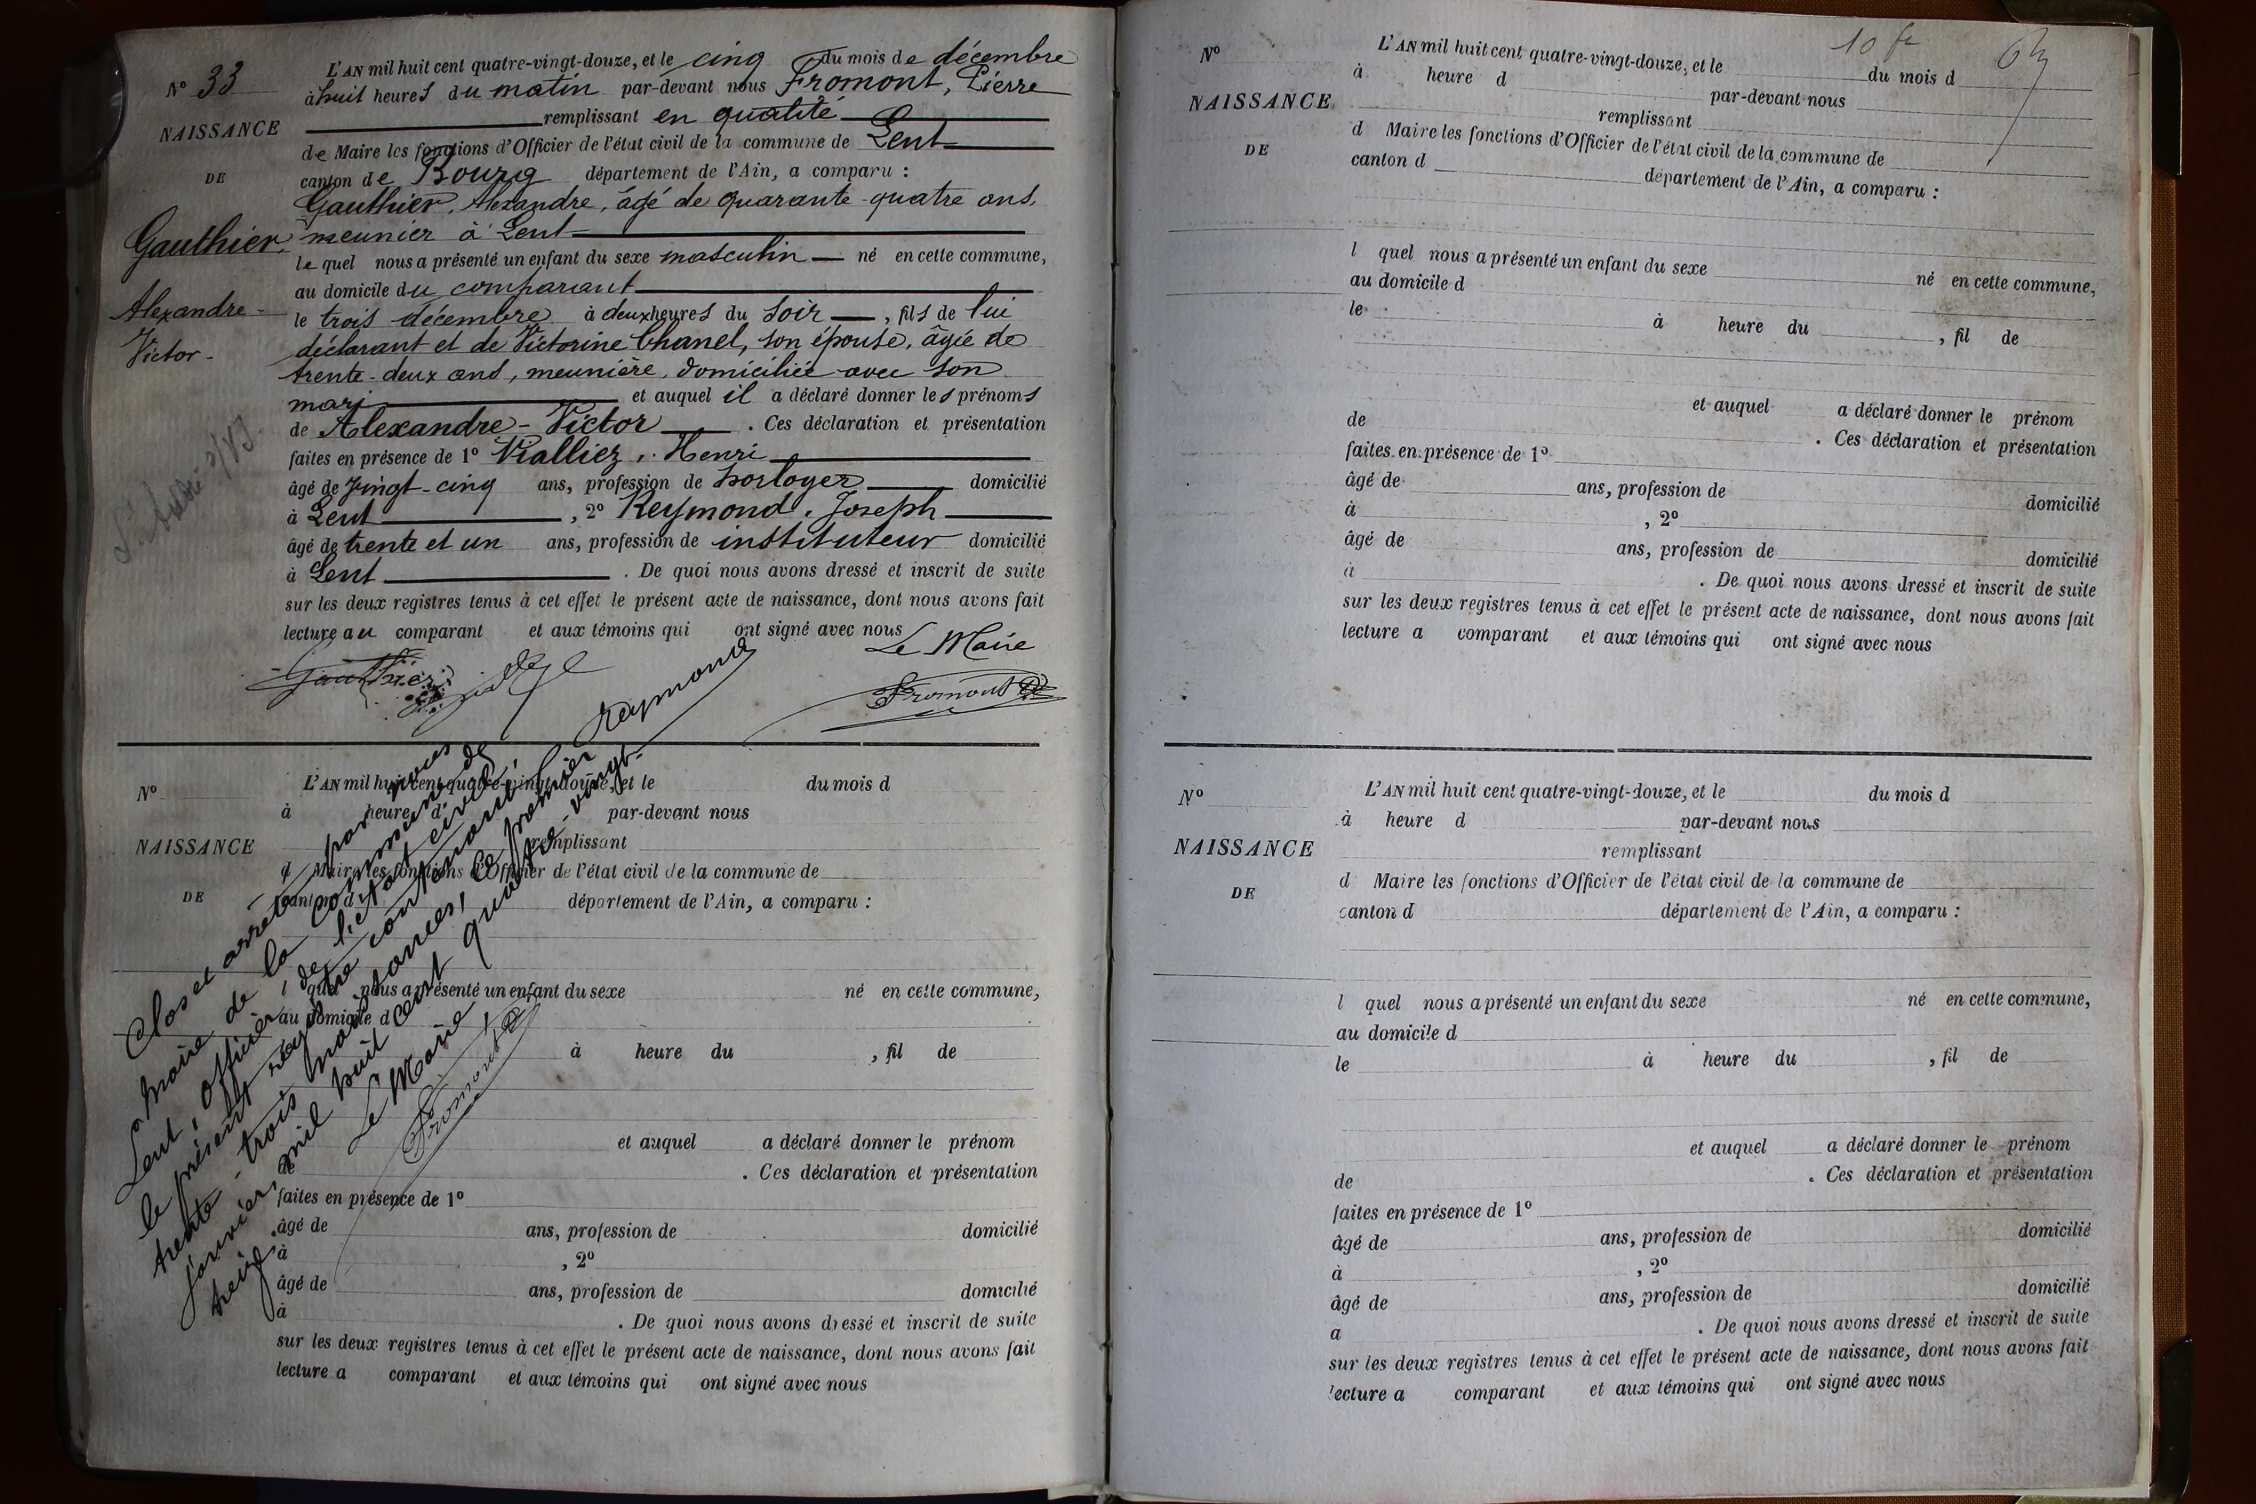 N° 33
NAISSANCE
DE
Gauthier,
Alexandre -
Victor -
L'AN mil huit cent quatre-vingt-douze, et le cinq du mois de décembre
à huit heures du matin par-devant nous Fromont, Pierre
remplissant en qualité
de Maire les fonctions d'Officier de l'état civil de la commune de Lent
canton de Bourg département de l'Ain, a comparu :
Gauthier, Alexandre, âgé de quarante-quatre ans,
meunier à Lent
lequel nous a présenté un enfant du sexe masculin né en cette commune,
au domicile du comparant
le trois décembre à deux heures du soir, fils de lui
déclarant et de Victorine Chanel, son épouse, âgée de
trente-deux ans, meunière, domiciliée avec son
mari et auquel il a déclaré donner les prénoms
de Alexandre-Victor. Ces déclaration et présentation
faites en présence de 1° Vialliez, Henri
âgé de vingt-cinq ans, profession de horloger domicilié
à Lent, 2° Reymond, Joseph
âgé de trente et un ans, profession de instituteur domicilié
à Lent. De quoi nous avons dressé et inscrit de suite
sur les deux registres tenus à cet effet le présent acte de naissance, dont nous avons fait
lecture au comparant et aux témoins qui ont signé avec nous
Le Maire
Gauthier
Raymond
Fromont
N°
NAISSANCE
DE
L'AN mil huit cent quatre-vingt-douze, et le du mois d
à heure d par-devant nous
remplissant
d Maire les fonctions d'Officier de l'état civil de la commune de
canton d département de l'Ain, a comparu :
l quel nous a présenté un enfant du sexe né en cette commune,
au domicile d
à heure du , fil de
et auquel a déclaré donner le prénom
de . Ces déclaration et présentation
faites en présence de 1°
âgé de ans, profession de domicilié
à , 2°
âgé de ans, profession de domicilié
à . De quoi nous avons dressé et inscrit de suite
sur les deux registres tenus à cet effet le présent acte de naissance, dont nous avons fait
lecture a comparant et aux témoins qui ont signé avec nous
Clos et arrêté par nous
maire de la commune de
Lent, officier de l'état civil,
le présent registre contenant
trente-trois naissances, ce premier
janvier mil huit cent quatre-vingt-
treize.
Le Maire
Fromont
10 fr
63
N°
NAISSANCE
DE
L'AN mil huit cent quatre-vingt-douze, et le du mois d
à heure d par-devant nous
remplissant
d Maire les fonctions d'Officier de l'état civil de la commune de
canton d département de l'Ain, a comparu :
l quel nous a présenté un enfant du sexe né en cette commune,
au domicile d
le à heure du , fil de
et auquel a déclaré donner le prénom
de . Ces déclaration et présentation
faites en présence de 1°
âgé de ans, profession de domicilié
à , 2°
âgé de ans, profession de domicilié
à . De quoi nous avons dressé et inscrit de suite
sur les deux registres tenus à cet effet le présent acte de naissance, dont nous avons fait
lecture a comparant et aux témoins qui ont signé avec nous
N°
NAISSANCE
DE
L'AN mil huit cent quatre-vingt-douze, et le du mois d
à heure d par-devant nous
remplissant
d Maire les fonctions d'Officier de l'état civil de la commune de
canton d département de l'Ain, a comparu :
l quel nous a présenté un enfant du sexe né en cette commune,
au domicile d
le à heure du , fil de
et auquel a déclaré donner le prénom
de . Ces déclaration et présentation
faites en présence de 1°
âgé de ans, profession de domicilié
à , 2°
âgé de ans, profession de domicilié
a . De quoi nous avons dressé et inscrit de suite
sur les deux registres tenus à cet effet le présent acte de naissance, dont nous avons fait
lecture a comparant et aux témoins qui ont signé avec nous